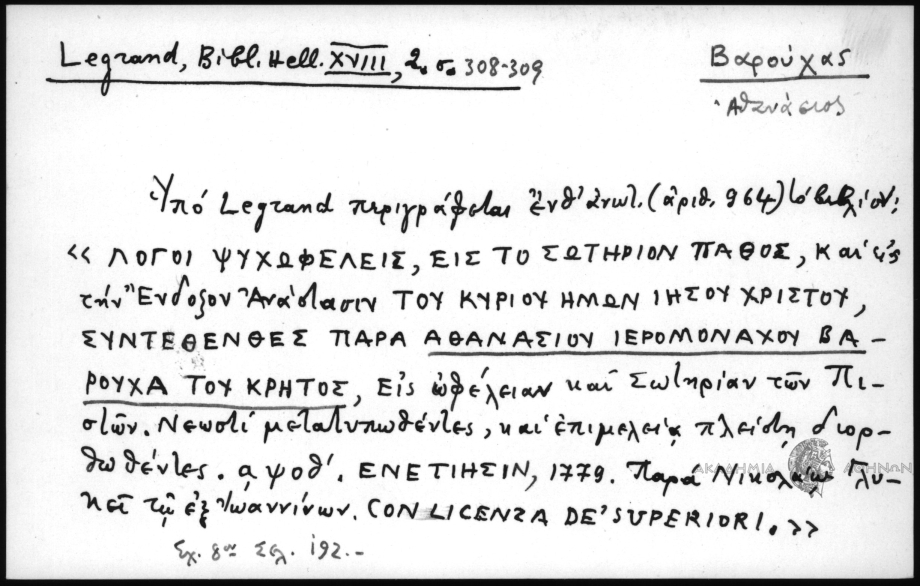 Legrand, Bibl. Hell. XVIII, 2. σ. 308-309
Βαρούχας
Ἀθανάσιος
Ὑπό Legrand περιγράφεται ἐνθ' ἀνωτ. (ἀριθ. 964) τό βιβλίον:
« ΛΟΓΟΙ ΨΥΧΩΦΕΛΕΙΣ, ΕΙΣ ΤΟ ΣΩΤΗΡΙΟΝ ΠΑΘΟΣ, καί εἰς
τήν Ἔνδοξον Ἀνάστασιν ΤΟΥ ΚΥΡΙΟΥ ΗΜΩΝ ΙΗΣΟΥ ΧΡΙΣΤΟΥ,
ΣΥΝΤΕΘΕΝΘΕΣ ΠΑΡΑ ΑΘΑΝΑΣΙΟΥ ΙΕΡΟΜΟΝΑΧΟΥ ΒΑ-
ΡΟΥΧΑ ΤΟΥ ΚΡΗΤΟΣ, Εἰς ὠφέλειαν καί Σωτηρίαν τῶν Πι-
στῶν. Νεωστί μετατυπωθέντες, καί ἐπιμελείᾳ πλείστῃ διορ-
θωθέντες. αψοθ'. ΕΝΕΤΙΗΣΙΝ, 1779. Παρά Νικολάῳ Γλυ-
ΑΚΑΔΗΜΙΑ ΑΘΗΝΩΝ
κεῖ τῷ ἐξ Ἰωαννίνων. CON LICENZA DE' SUPERIORI. »
Σχ. 8ον Σελ. 192.-